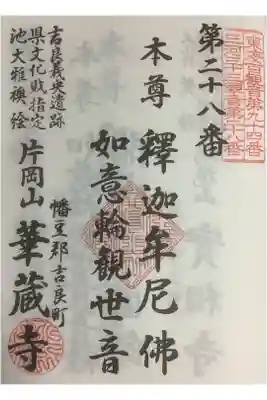 東海百観音第九十四番
三河三十三観音第二十八番
第二十八番
本尊 釋迦牟尼佛
如意輪観世音
幡豆郡吉良町
片岡山 華蔵寺
吉良義央遺跡
県文化財指定
池大雅襖絵